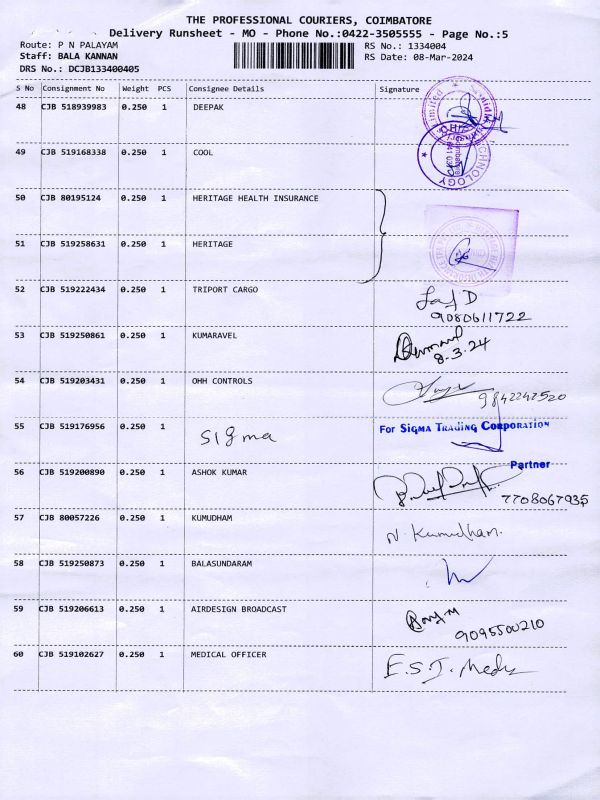 THE PROFESSIONAL COURIERS, COIMBATORE
Delivery Runsheet - MO - Phone No.:0422-3505555 - Page No.:5
Route: P N PALAYAM
RS No.: 1334004
Staff: BALA KANNAN
RS Date: 08-Mar-2024
DRS No.: DCJB133400405
S No Consignment No Weight PCS Consignee Details Signature
48 CJB 518939983 0.250 1 DEEPAK
49 CJB 519168338 0.250 1 COOL
TECHNOLOGY
50 CJB 80195124 0.250 1 HERITAGE HEALTH INSURANCE
51 CJB 519258631 0.250 1 HERITAGE
52 CJB 519222434 0.250 1 TRIPORT CARGO
9080611722
53 CJB 519250861 0.250 1 KUMARAVEL
8.3.24
54 CJB 519203431 0.250 1 OHH CONTROLS
9842242520
55 CJB 519176956 0.250 1 Sigma
For SIGMA TRADING CORPORATION
Partner
56 CJB 519200890 0.250 1 ASHOK KUMAR
7708067935
57 CJB 80057226 0.250 1 KUMUDHAM
N. Kumudham.
58 CJB 519250873 0.250 1 BALASUNDARAM
59 CJB 519206613 0.250 1 AIRDESIGN BROADCAST
9095500210
60 CJB 519102627 0.250 1 MEDICAL OFFICER
E.S.I.